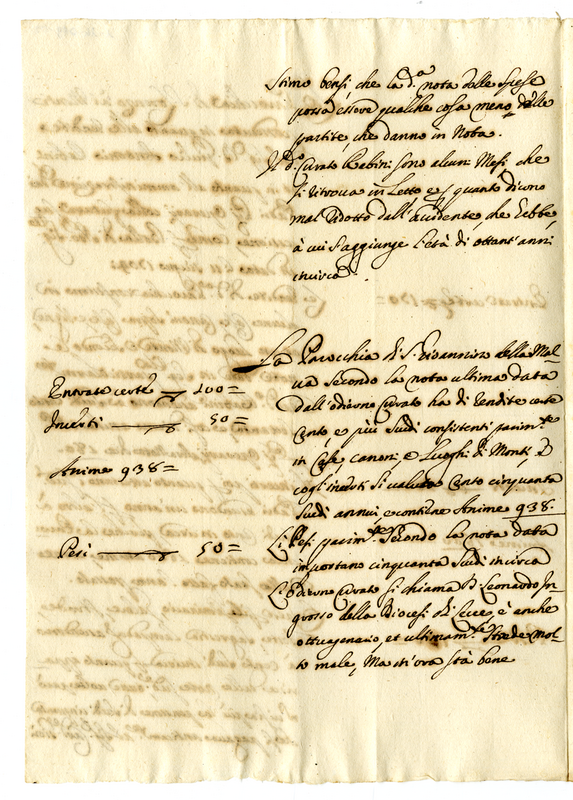 Stimo bensì, che la d.ª nota delle spese
possa essere qualche cosa meno delle
partite, che danno in Nota.
Il d.º Curato Rabini sono alcuni Mesi, che
si ritrova in Letto e quanto dicono
mal ridotto dall'accidente, che hebbe,
à cui s'aggiunge l'età di ottant'anni
incirca.
La Parocchia di S. Giovannino della Mal-
va secondo la nota ultima data
Entrate certe 100=
dall'odierno Curato ha di rendite certe
Incerti 50=
Cento, e più scudi consistenti parim.te
in Case, canoni, e Luoghi di Monti, e
Anime 938=
cogl'incerti si valuta Cento cinquanta
scudi annui e contiene Anime 938.
Pesi 50=
Li Pesi parim.te secondo la nota data
importano cinquanta scudi incirca
L'odierno Curato si chiama D. Leonardo In-
grosso della Diocesi di Lecce, è anche
ottuagenario, et ultimam.te stiede mol-
to male, Ma st'ora stà bene